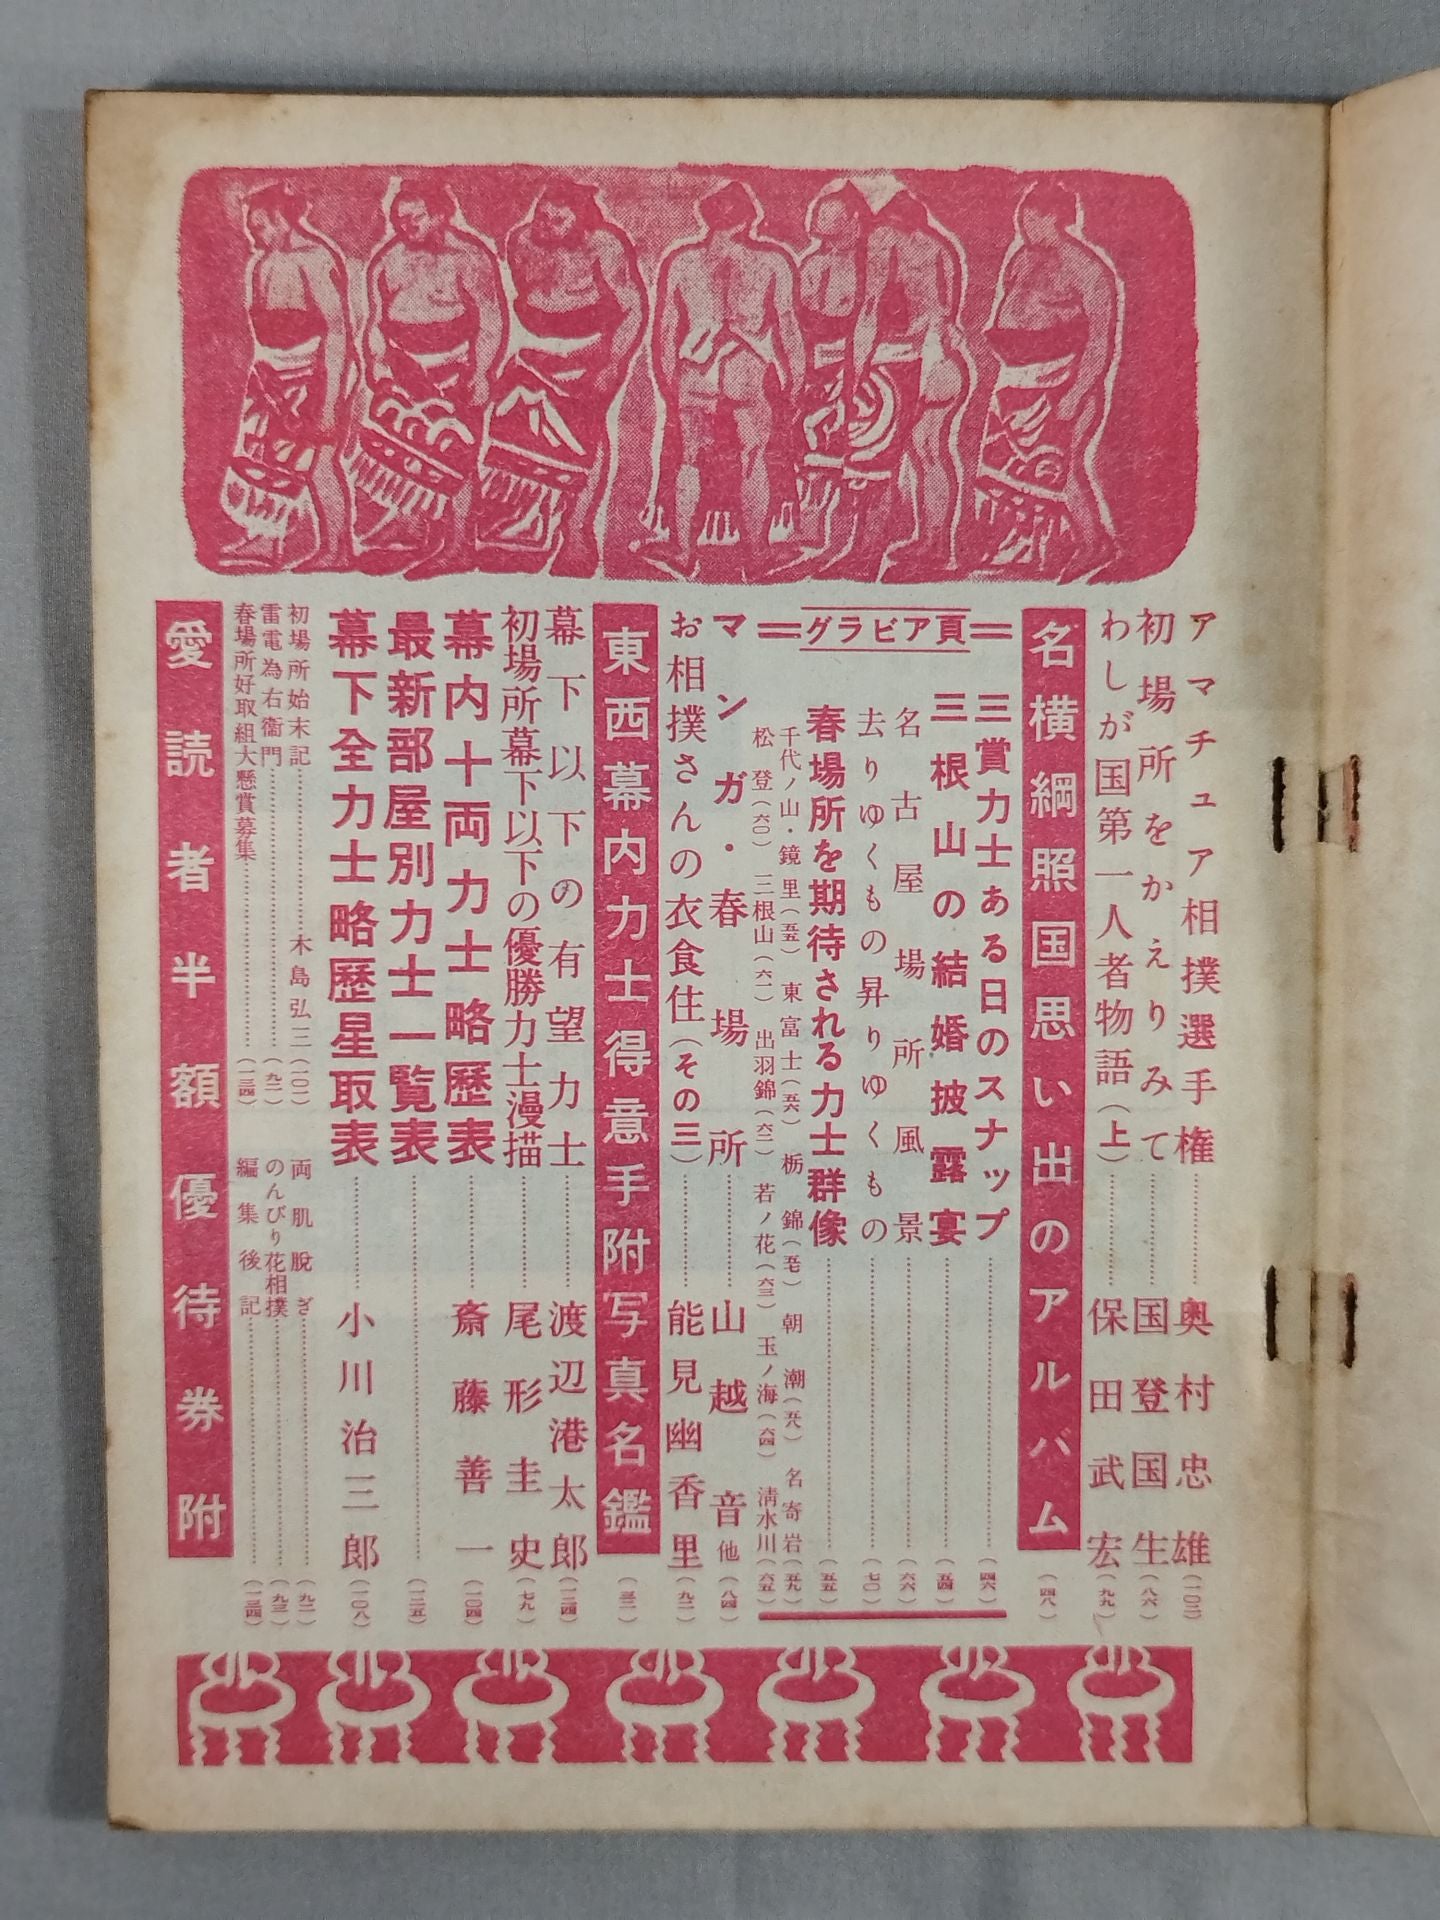 アマチュア相撲選手権………奥村忠雄(一〇二)
初場所をかえりみて………国登国生(八六)
わしが国第一人者物語(上)………保田武宏(九九)
名横綱照国思い出のアルバム(四八)
=グラビア頁=
三賞力士ある日のスナップ………(四六)
三根山の結婚披露宴………(五四)
名古屋場所風景………(六六)
去りゆくもの昇りゆくもの………(七〇)
春場所を期待される力士群像………(五五)
千代ノ山・鏡里(五五) 東富士(五六) 栃錦(五七) 朝潮(五八) 名寄岩(五九)
松登(六〇) 三根山(六一) 出羽錦(六二) 若ノ花(六三) 玉ノ海(六四) 清水川(六五)
マンガ・春場所………山越音他(八四)
お相撲さんの衣食住(その三)………能見幽香里(九二)
東西幕内力士得意手附写真名鑑(三二)
幕下以下の有望力士………渡辺港太郎(一二四)
初場所幕下以下の優勝力士漫描………尾形圭史(七九)
幕内十両力士略歴表………斎藤善一(一〇四)
最新部屋別力士一覧表………(一二五)
幕下全力士略歴星取表………小川治三郎(一〇八)
初場所始末記………木島弘三(一〇二)
雷電為右衛門………(九二)
春場所好取組大懸賞募集………(一三四)
両肌脱ぎ………(九二)
のんびり花相撲………(九三)
編集後記………(一三四)
愛読者半額優待券附